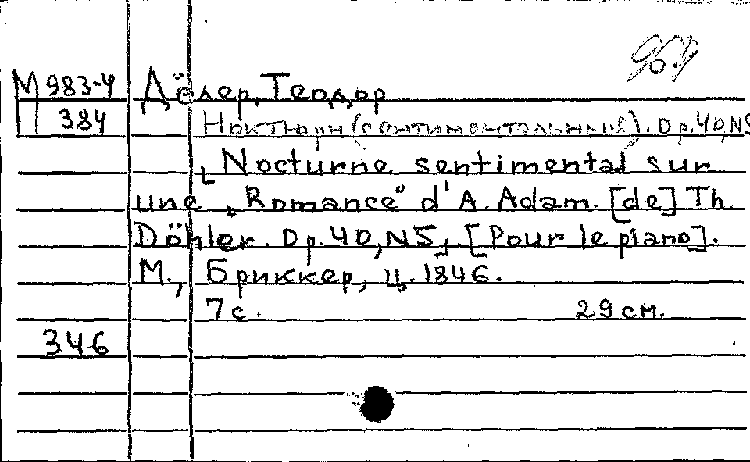 М 983-4 Дёлер, Теодор
384 Ноктюрн (сентиментальный). Op. 40, N5
[Nocturne sentimental sur
une „Romance" d'A. Adam. [de] Th.
Döhler. Op. 40, N5]. [Pour le piano].
М., Бриккер, ц. 1846.
7 с. 29 см.
346